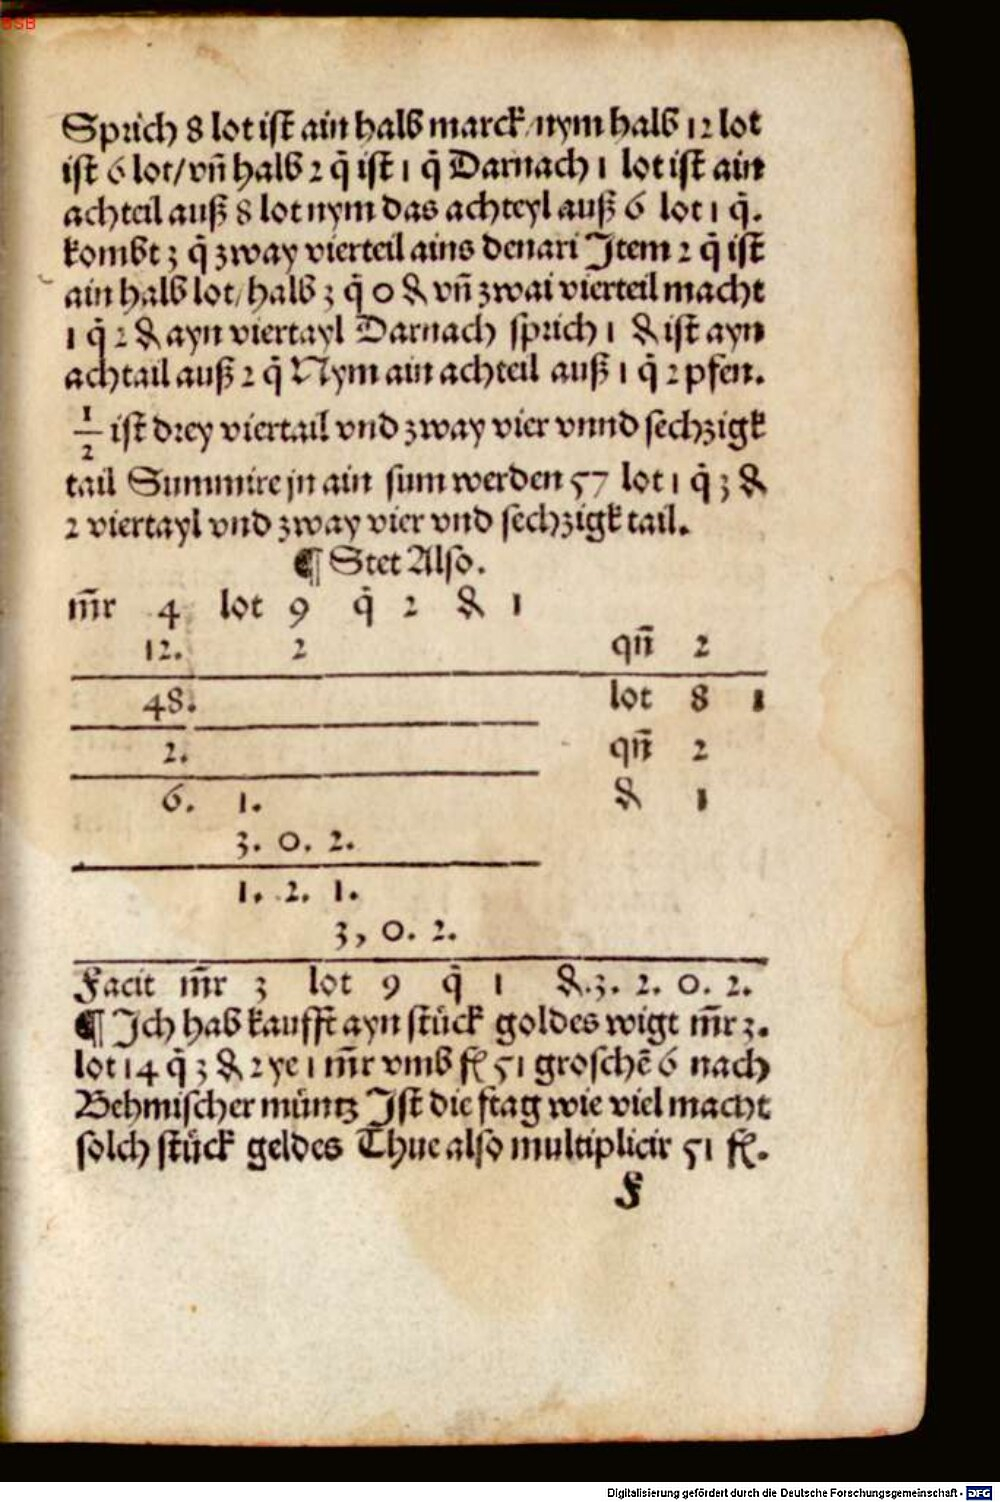 BSB
Sprich 8 lot ist ain halb marck/nym halb 12 lot
ist 6 lot/vñ halb 2 q̃ ist 1 q̃ Darnach 1 lot ist ain
achteil auß 8 lot nym das achteyl auß 6 lot 1 q̃.
kombt 3 q̃ zway vierteil ains denari Item 2 q̃ ist
ain halb lot/halb 3 q̃ 0 ₰ vñ zwai vierteil macht
1 q̃ 2 ₰ ayn viertayl Darnach sprich 1 ₰ ist ayn
achtail auß 2 q̃ Nym ain achteil auß 1 q̃ 2 pfen.
1/2 ist drey viertail vnd zway vier vnnd sechzigk
tail Summire jn ain sum werden 57 lot 1 q̃ 3 ₰
2 viertayl vnd zway vier vnd sechzigk tail.
¶ Stet Also.
m̃r 4 lot 9 q̃ 2 ₰ 1
12. 2 qñ 2
48. lot 8 1
2. qñ 2
6. 1. ₰ 1
3. 0. 2.
1. 2. 1.
3, 0. 2.
Facit m̃r 3 lot 9 q̃ 1 ₰.3. 2. 0. 2.
¶ Ich hab kaufft ayn stück goldes wigt m̃r 3.
lot 14 q̃ 3 ₰ 2 ye 1 m̃r vmb fl 51 groschẽ 6 nach
Behmischer müntz Ist die frag wie viel macht
solch stück geldes Thue also multiplicir 51 fl.
F
Digitalisierung gefördert durch die Deutsche Forschungsgemeinschaft - DFG